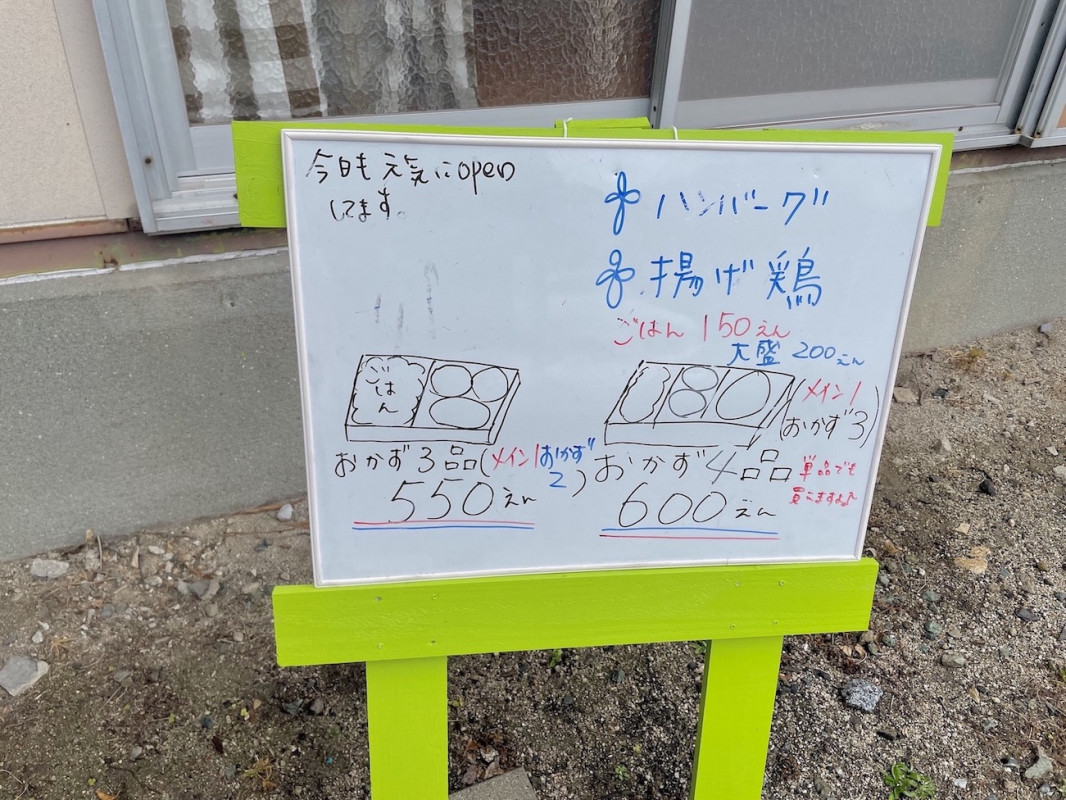 今日も元気にopen
してます。
ハンバーグ
揚げ鶏
ごはん 150えん
大盛 200えん
ごはん
おかず3品(メイン1おかず2)
550えん
(メイン1
おかず3)
おかず4品
600えん
単品でも
買えますよ♪